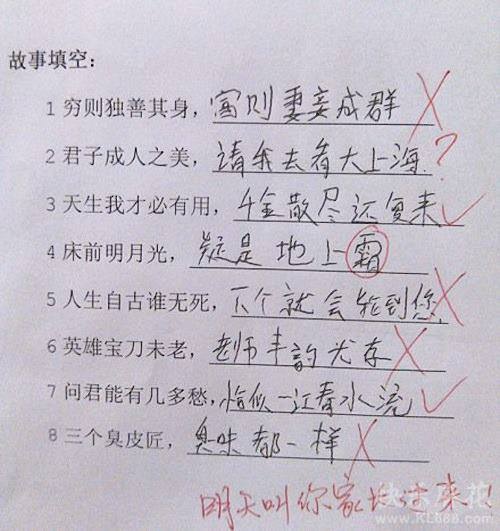 故事填空：
1 穷则独善其身，富则妻妾成群
2 君子成人之美，请我去看大上海.？
3 天生我才必有用，千金散尽还复来
4 床前明月光，疑是地上霜
5 人生自古谁无死，下个就会轮到您
6 英雄宝刀未老，老师丰韵尤存
7 问君能有几多愁，恰似一江春水流
8 三个臭皮匠，臭味都一样
明天叫你家长过来！
www.KL688.com